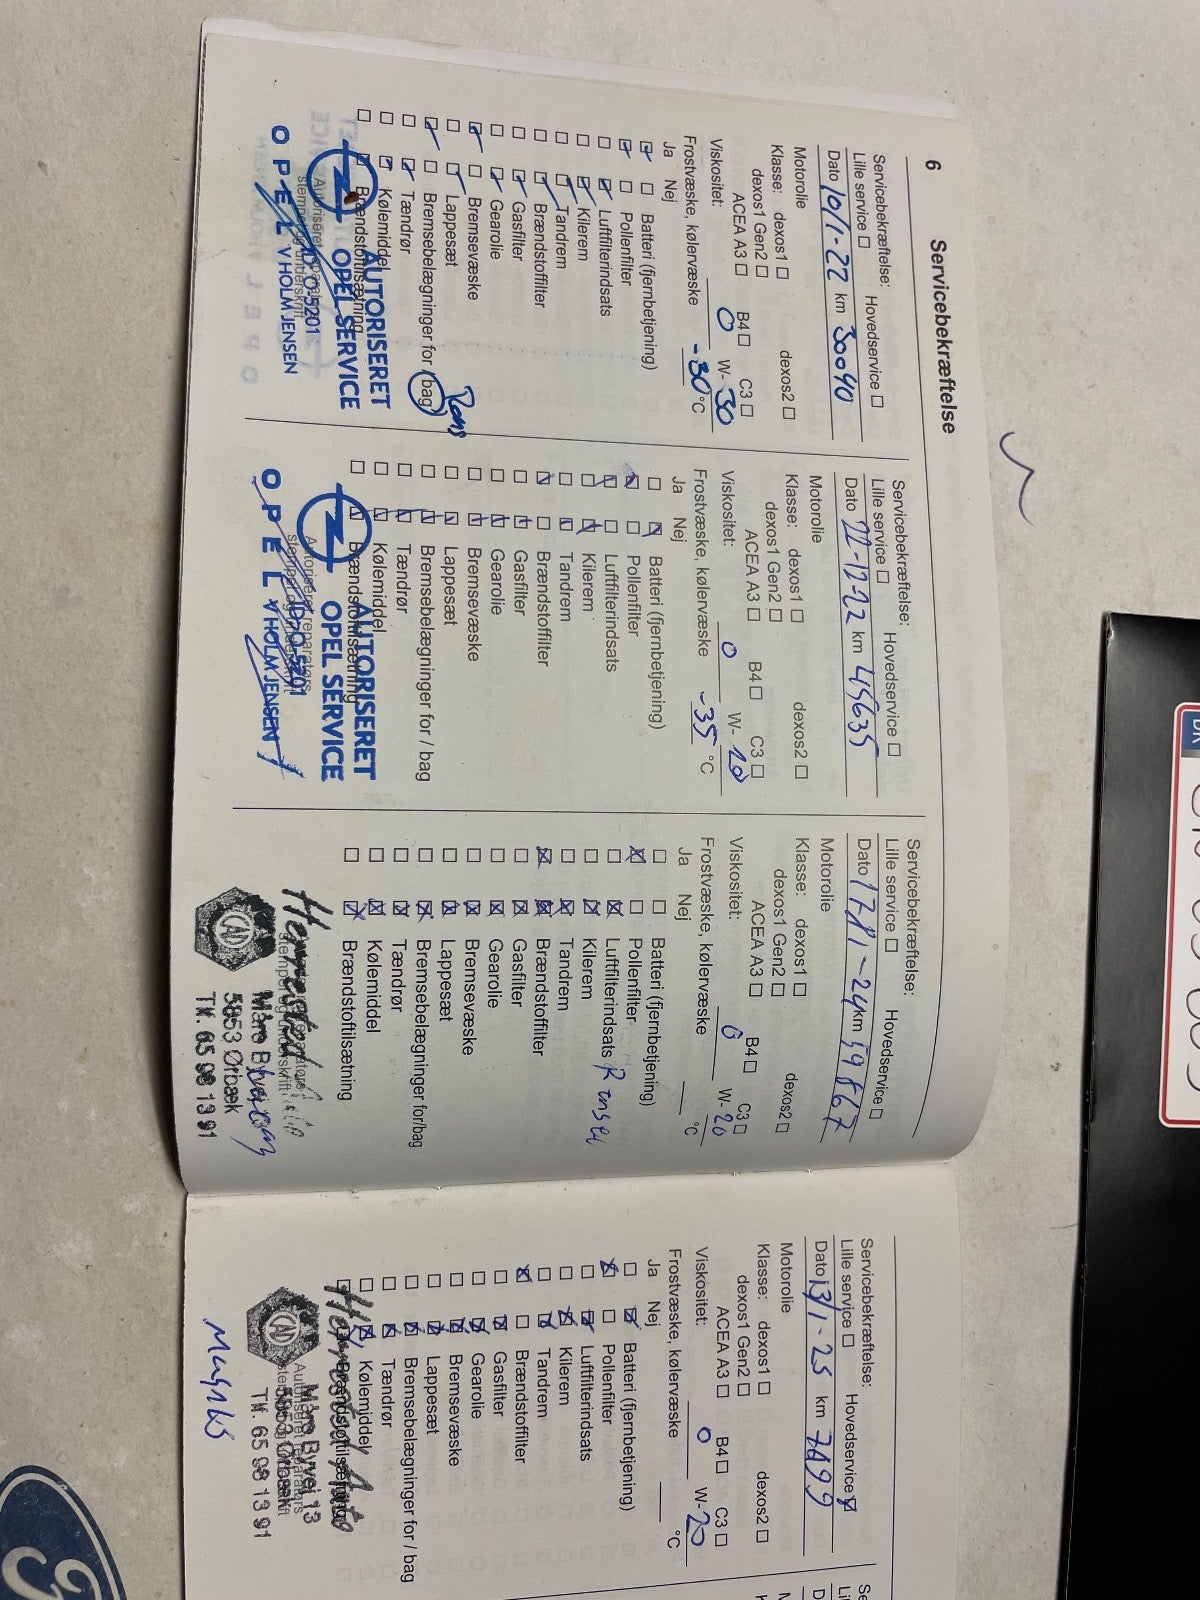 6
Servicebekræftelse
Servicebekræftelse:
Lille service ☐ Hovedservice ☐
Dato 10/1-22 km 30090
Motorolie
Klasse: dexos1 ☐ dexos2 ☐
dexos1 Gen2 ☐
ACEA A3 ☐ B4 ☐ C3 ☐
Viskositet: 0 W- 30
Frostvæske, kølervæske -30 °C
Ja Nej
☑ ☐ Batteri (fjernbetjening)
☑ ☐ Pollenfilter
☐ ☑ Luftfilterindsats
☐ ☑ Kilerem
☐ ☑ Tandrem
☐ ☑ Brændstoffilter
☐ ☑ Gasfilter
☐ ☑ Gearolie
☑ ☐ Bremsevæske
☐ ☑ Lappesæt
☑ ☐ Bremsebelægninger for / bag Rens
☐ ☑ Tændrør
☐ ☑ Kølemiddel
☐ ☑ Brændstoftilsætning
AUTORISERET
OPEL SERVICE
DO-5201
OPEL V HOLM JENSEN
Servicebekræftelse:
Lille service ☐ Hovedservice ☐
Dato 22-12-22 km 45635
Motorolie
Klasse: dexos1 ☐ dexos2 ☐
dexos1 Gen2 ☐
ACEA A3 ☐ B4 ☐ C3 ☐
Viskositet: 0 W- 20
Frostvæske, kølervæske -35 °C
Ja Nej
☐ ☑ Batteri (fjernbetjening)
☑ ☐ Pollenfilter
☑ ☐ Luftfilterindsats
☐ ☑ Kilerem
☐ ☑ Tandrem
☑ ☐ Brændstoffilter
☐ ☑ Gasfilter
☐ ☑ Gearolie
☐ ☑ Bremsevæske
☐ ☑ Lappesæt
☐ ☑ Bremsebelægninger for / bag
☐ ☑ Tændrør
☐ ☑ Kølemiddel
☐ ☑ Brændstoftilsætning
AUTORISERET
OPEL SERVICE
DO-5201
OPEL V HOLM JENSEN
Servicebekræftelse:
Lille service ☐ Hovedservice ☐
Dato km 59867
Motorolie
Klasse: dexos1 ☐ dexos2 ☐
dexos1 Gen2 ☐
ACEA A3 ☐ B4 ☐ C3 ☐
Viskositet: 0 W- 20
Frostvæske, kølervæske °C
Ja Nej
☐ ☐ Batteri (fjernbetjening)
☒ ☐ Pollenfilter
☐ ☒ Luftfilterindsats Renset
☐ ☒ Kilerem
☐ ☒ Tandrem
☒ ☒ Brændstoffilter
☐ ☒ Gasfilter
☐ ☒ Gearolie
☐ ☒ Bremsevæske
☐ ☒ Lappesæt
☐ ☒ Bremsebelægninger for/bag
☐ ☒ Tændrør
☐ ☒ Kølemiddel
☐ ☒ Brændstoftilsætning
CAD
Herrested Auto
Måre Byvej 13
5853 Ørbæk
Tlf. 65 98 13 91
Servicebekræftelse:
Lille service ☐ Hovedservice ☒
Dato 13/1-25 km 7499
Motorolie
Klasse: dexos1 ☐ dexos2 ☐
dexos1 Gen2 ☐
ACEA A3 ☐ B4 ☐ C3 ☐
Viskositet: 0 W- 20
Frostvæske, kølervæske °C
Ja Nej
☐ ☒ Batteri (fjernbetjening)
☒ ☐ Pollenfilter
☐ ☒ Luftfilterindsats
☐ ☒ Kilerem
☐ ☒ Tandrem
☒ ☐ Brændstoffilter
☐ ☒ Gasfilter
☐ ☒ Gearolie
☐ ☒ Bremsevæske
☐ ☒ Lappesæt
☐ ☒ Bremsebelægninger for / bag
☐ ☒ Tændrør
☐ ☒ Kølemiddel
Brændstoftilsætning
CAD
Herrested Auto
Autoriseret reparatørs
Måre Byvej 13
5853 Ørbæk
Tlf. 65 98 13 91
DK